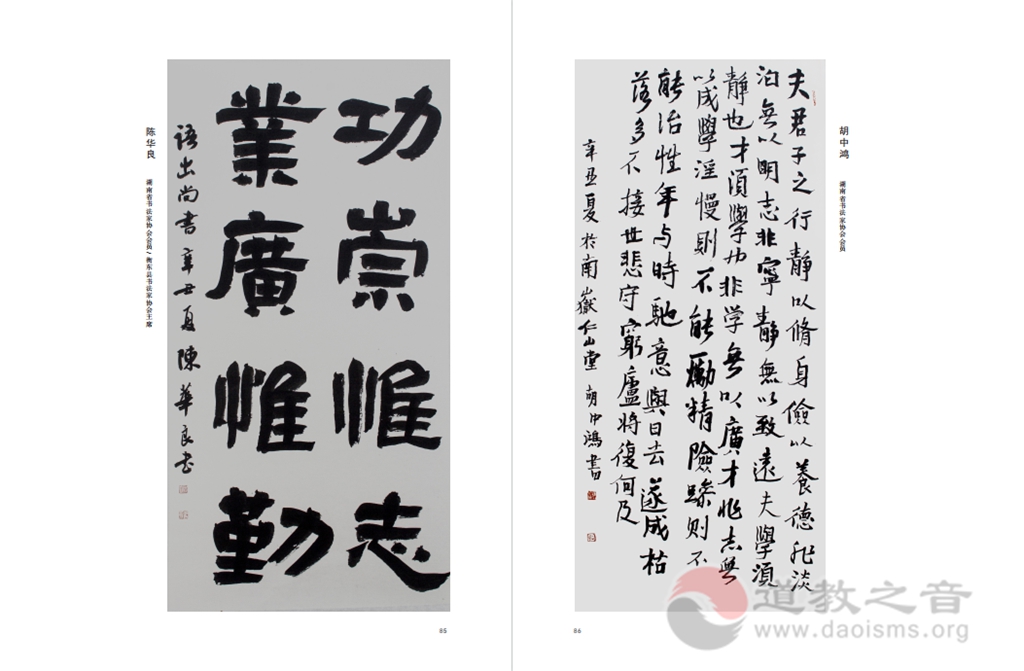 陈华良
湖南省书法家协会会员/衡东县书法家协会主席
功崇惟志
業廣惟勤
語出尚書辛丑夏陳華良书
85
胡中鸿
湖南省书法家协会会员
夫君子之行静以脩身儉以養德非淡
泊無以明志非寧静無以致遠夫學須
静也才須學也非学無以廣才非志無
以成學淫慢則不能勵精險躁则不
能治性年与時馳意與日去遂成枯
落多不接世悲守窮廬將復何及
辛丑夏於南嶽仁山堂胡中鴻書
86
道教之音
www.daoisms.org